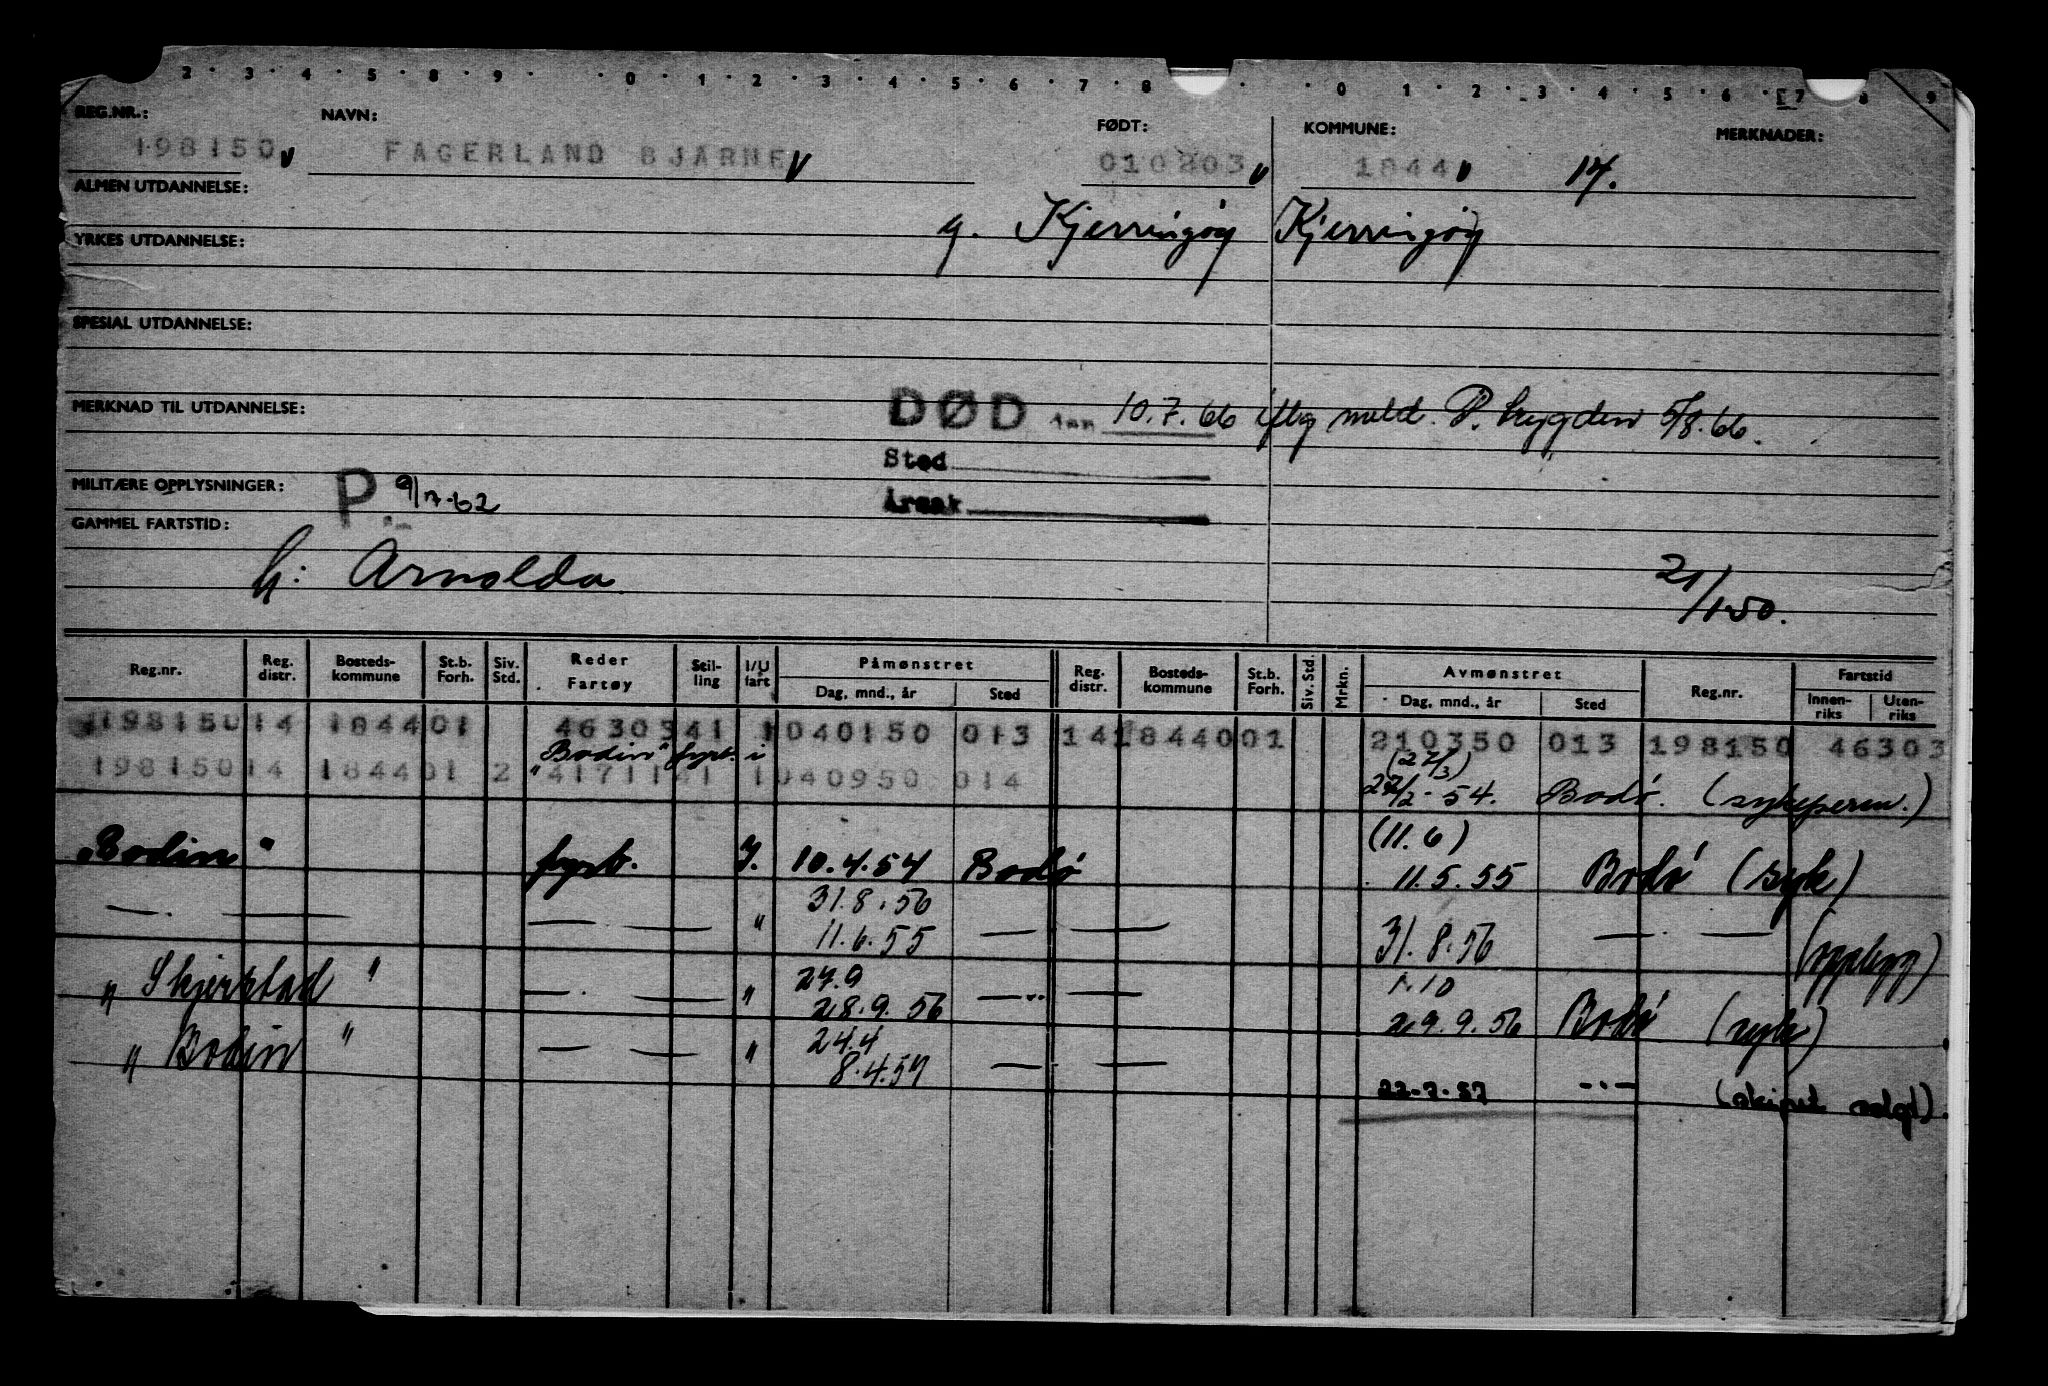 2 · 3 · 4 · 5 · 8 · 9 · · 0 · 1 · 2 · 3 · 4 · 5 · 6 · 7 · 8 · · 0 · 1 · 2 · 3 · 4 · 5 · 6 · 7 8 9
REG.NR.: NAVN: FØDT: KOMMUNE: MERKNADER:
198150 FAGERLAND BJARNE 010203 1844 17.
ALMEN UTDANNELSE:
g. Kjerringøy Kjerringøy
YRKES UTDANNELSE:
SPESIAL UTDANNELSE:
MERKNAD TIL UTDANNELSE: DØD den 10.7.66 iflg meld. P. trygden 5/8.66.
Sted
MILITÆRE OPPLYSNINGER: P. 9/7-62 Årsak
GAMMEL FARTSTID:
G: Arnolda 21/1-50.
Reg.nr. Reg. distr. Bosteds- kommune St.b. Forh. Siv. Std. Reder Fartøy Stil- ling I/U fart Påmønstret Dag, mnd., år Sted Reg. distr. Bosteds- kommune St.b. Forh. Siv. Std. Mrkn. Avmønstret Dag, mnd., år Sted Reg.nr. Fartstid Innen- riks Uten- riks
198150 14 1844 01 46303 41 1 040150 013 14 1844 001 210350 013 198150 46303
"Bodin" fyrb. i (27/3)
198150 14 1844 01 2 41711 41 1 040950 014 27/2-54. Bodø. (sykeperm.)
(11.6)
"Bodin" fyrb. I. 10.4.54 Bodø 11.5.55 Bodø (syk)
31.8.56
— . — — . — " 11.6.55 — . — 31.8.56 — . — (opplegg)
27.9 1.10
"Skjerstad" — . — " 28.9.56 — .. — 29.9.56 Bodø (syk)
24.4
"Bodin" — . — " 8.4.57 — . — 22-7-57 — . — (skipet solgt).